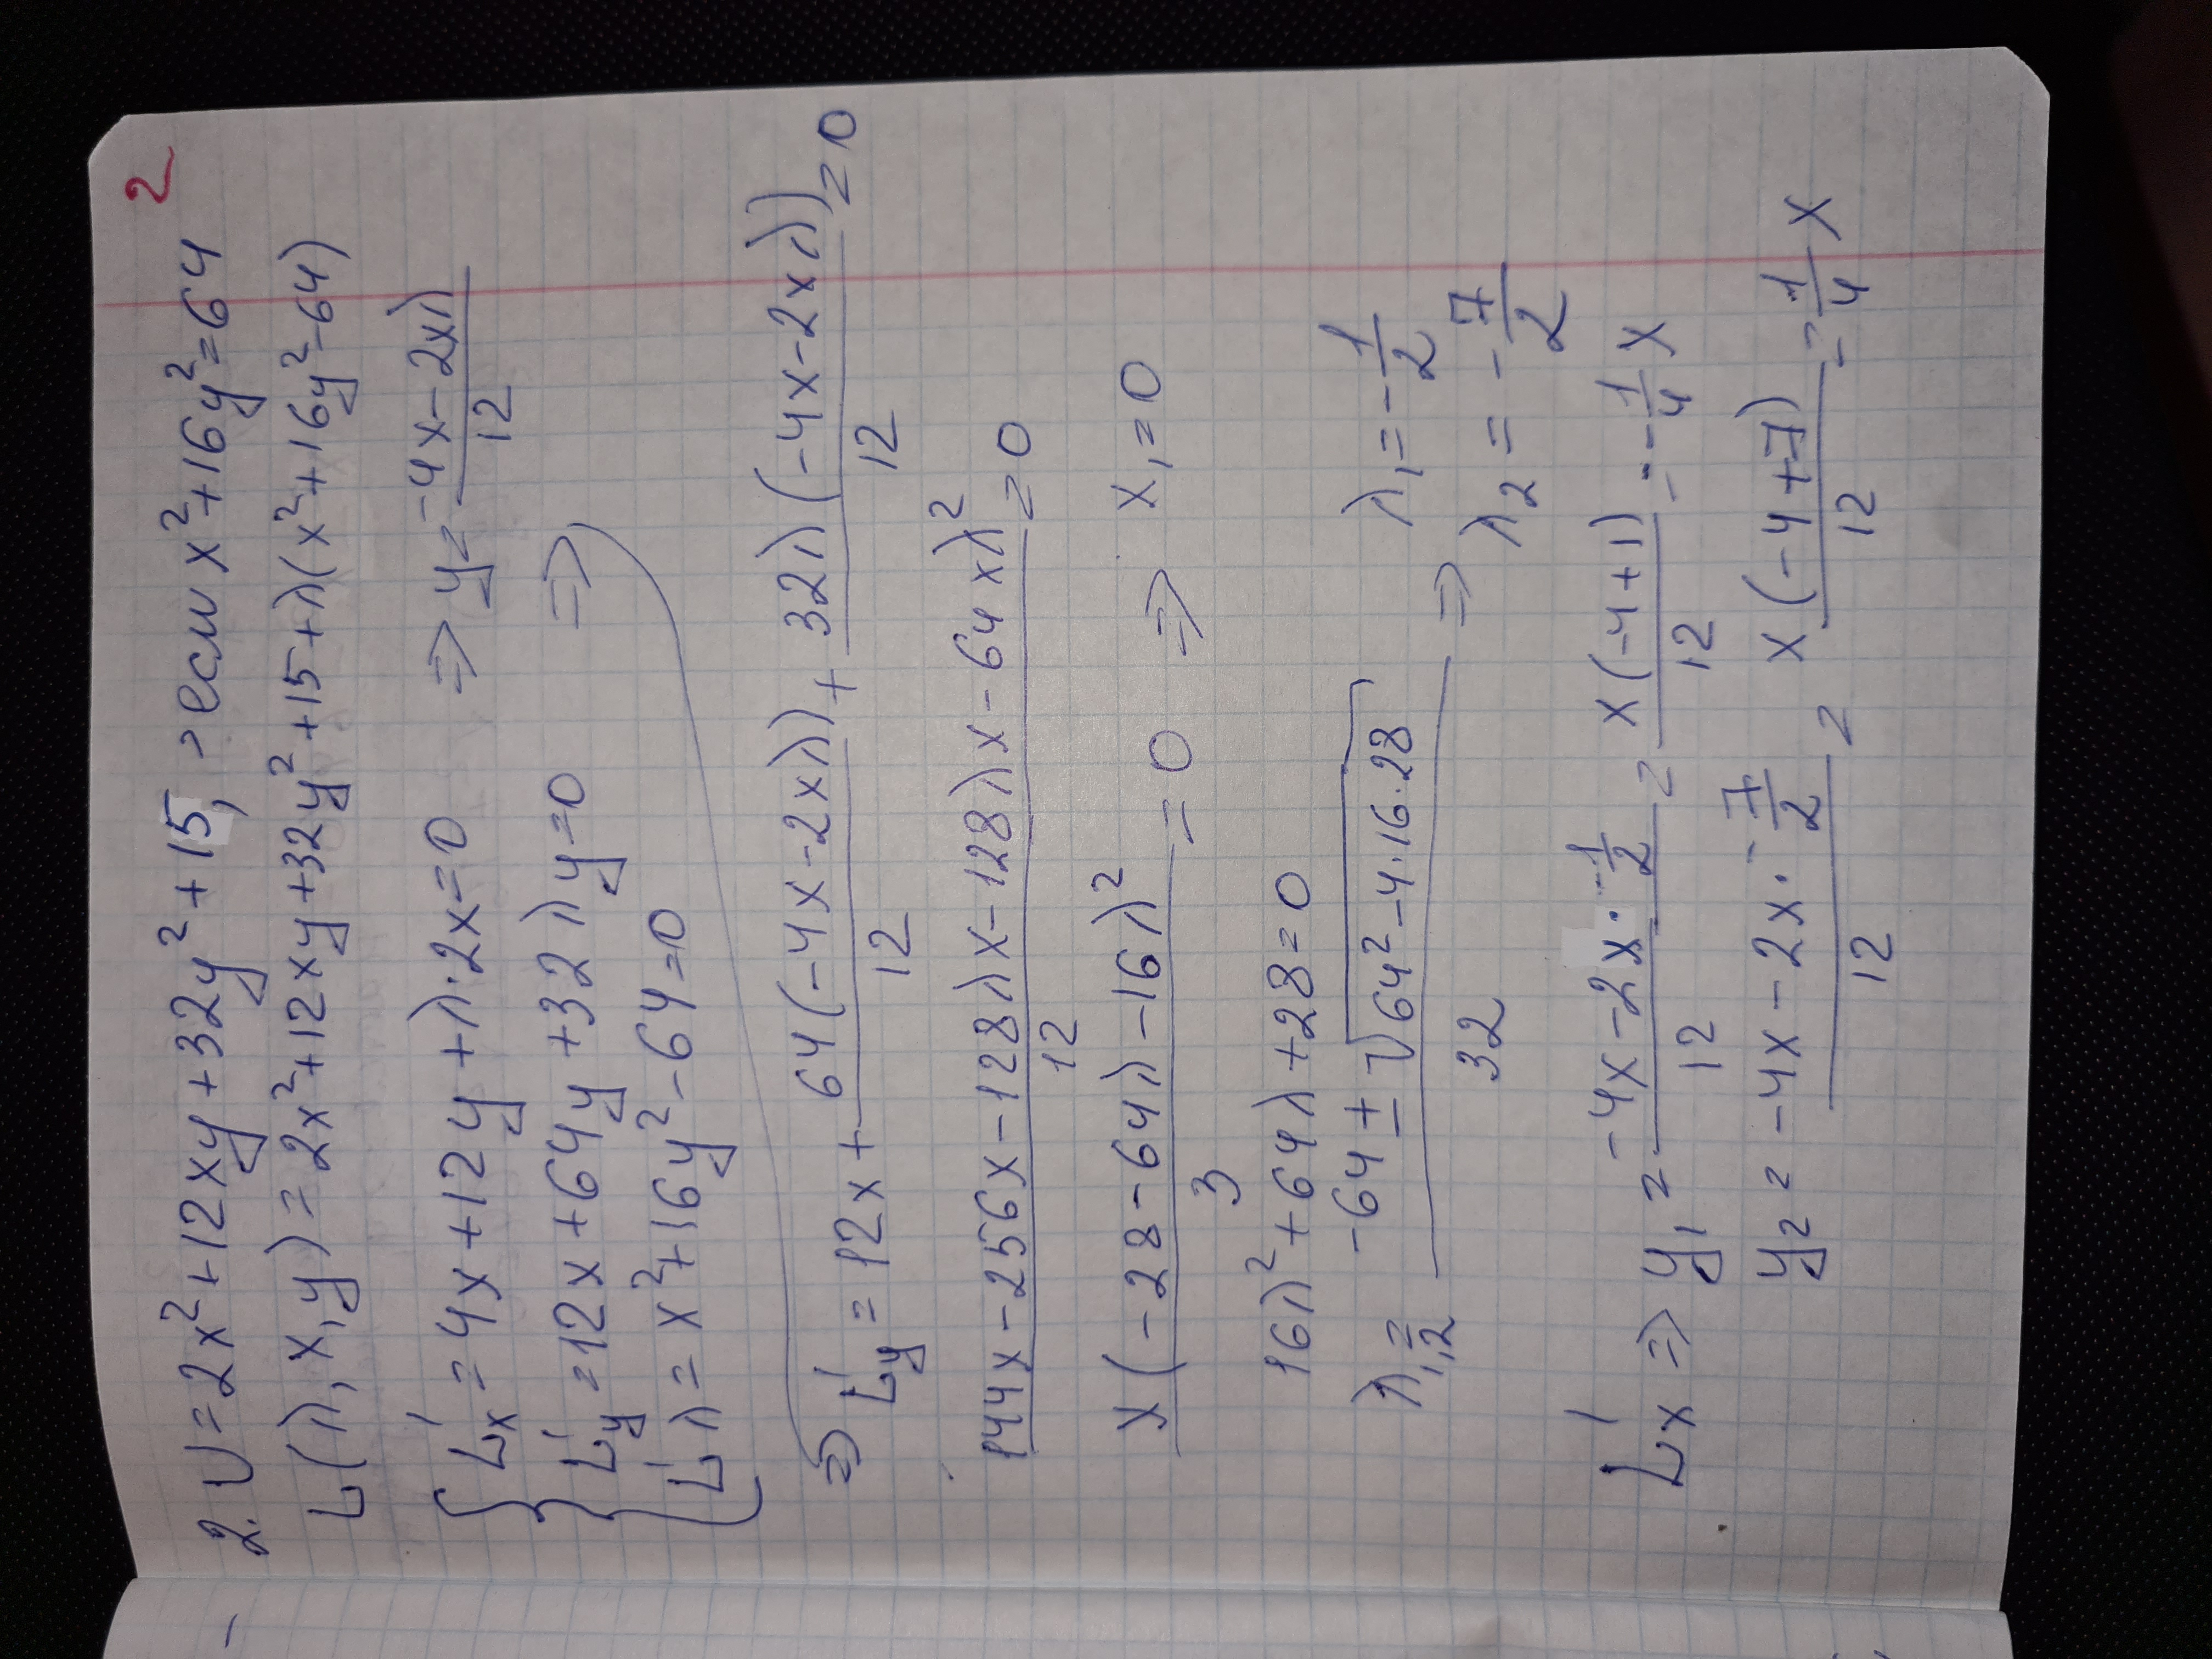 2
2. U=2x²+12xy+32y²+15, если x²+16y²=64
L(λ,x,y)=2x²+12xy+32y²+15+λ(x²+16y²-64)
L'x=4x+12y+λ·2x=0 => y=(-4x-2xλ)/12
L'y=12x+64y+32λy=0 =>
L'λ=x²+16y²-64=0
=> L'y=12x+64(-4x-2xλ)/12+32λ(-4x-2xλ)/12=0
(144x-256x-128λx-128λx-64xλ²)/12=0
x(-28-64λ-16λ²/3=0 => x₁=0
16λ²+64λ+28=0
λ₁,₂=(-64±√(64²-4·16·28))/32 => λ₁=-1/2
λ₂=-7/2
L'x => y₁=(-4x-2x·-1/2)/12=x(-4+1)/12=-1/4x
y₂=(-4x-2x·-7/2)/12=x(-4+7)/12=1/4x